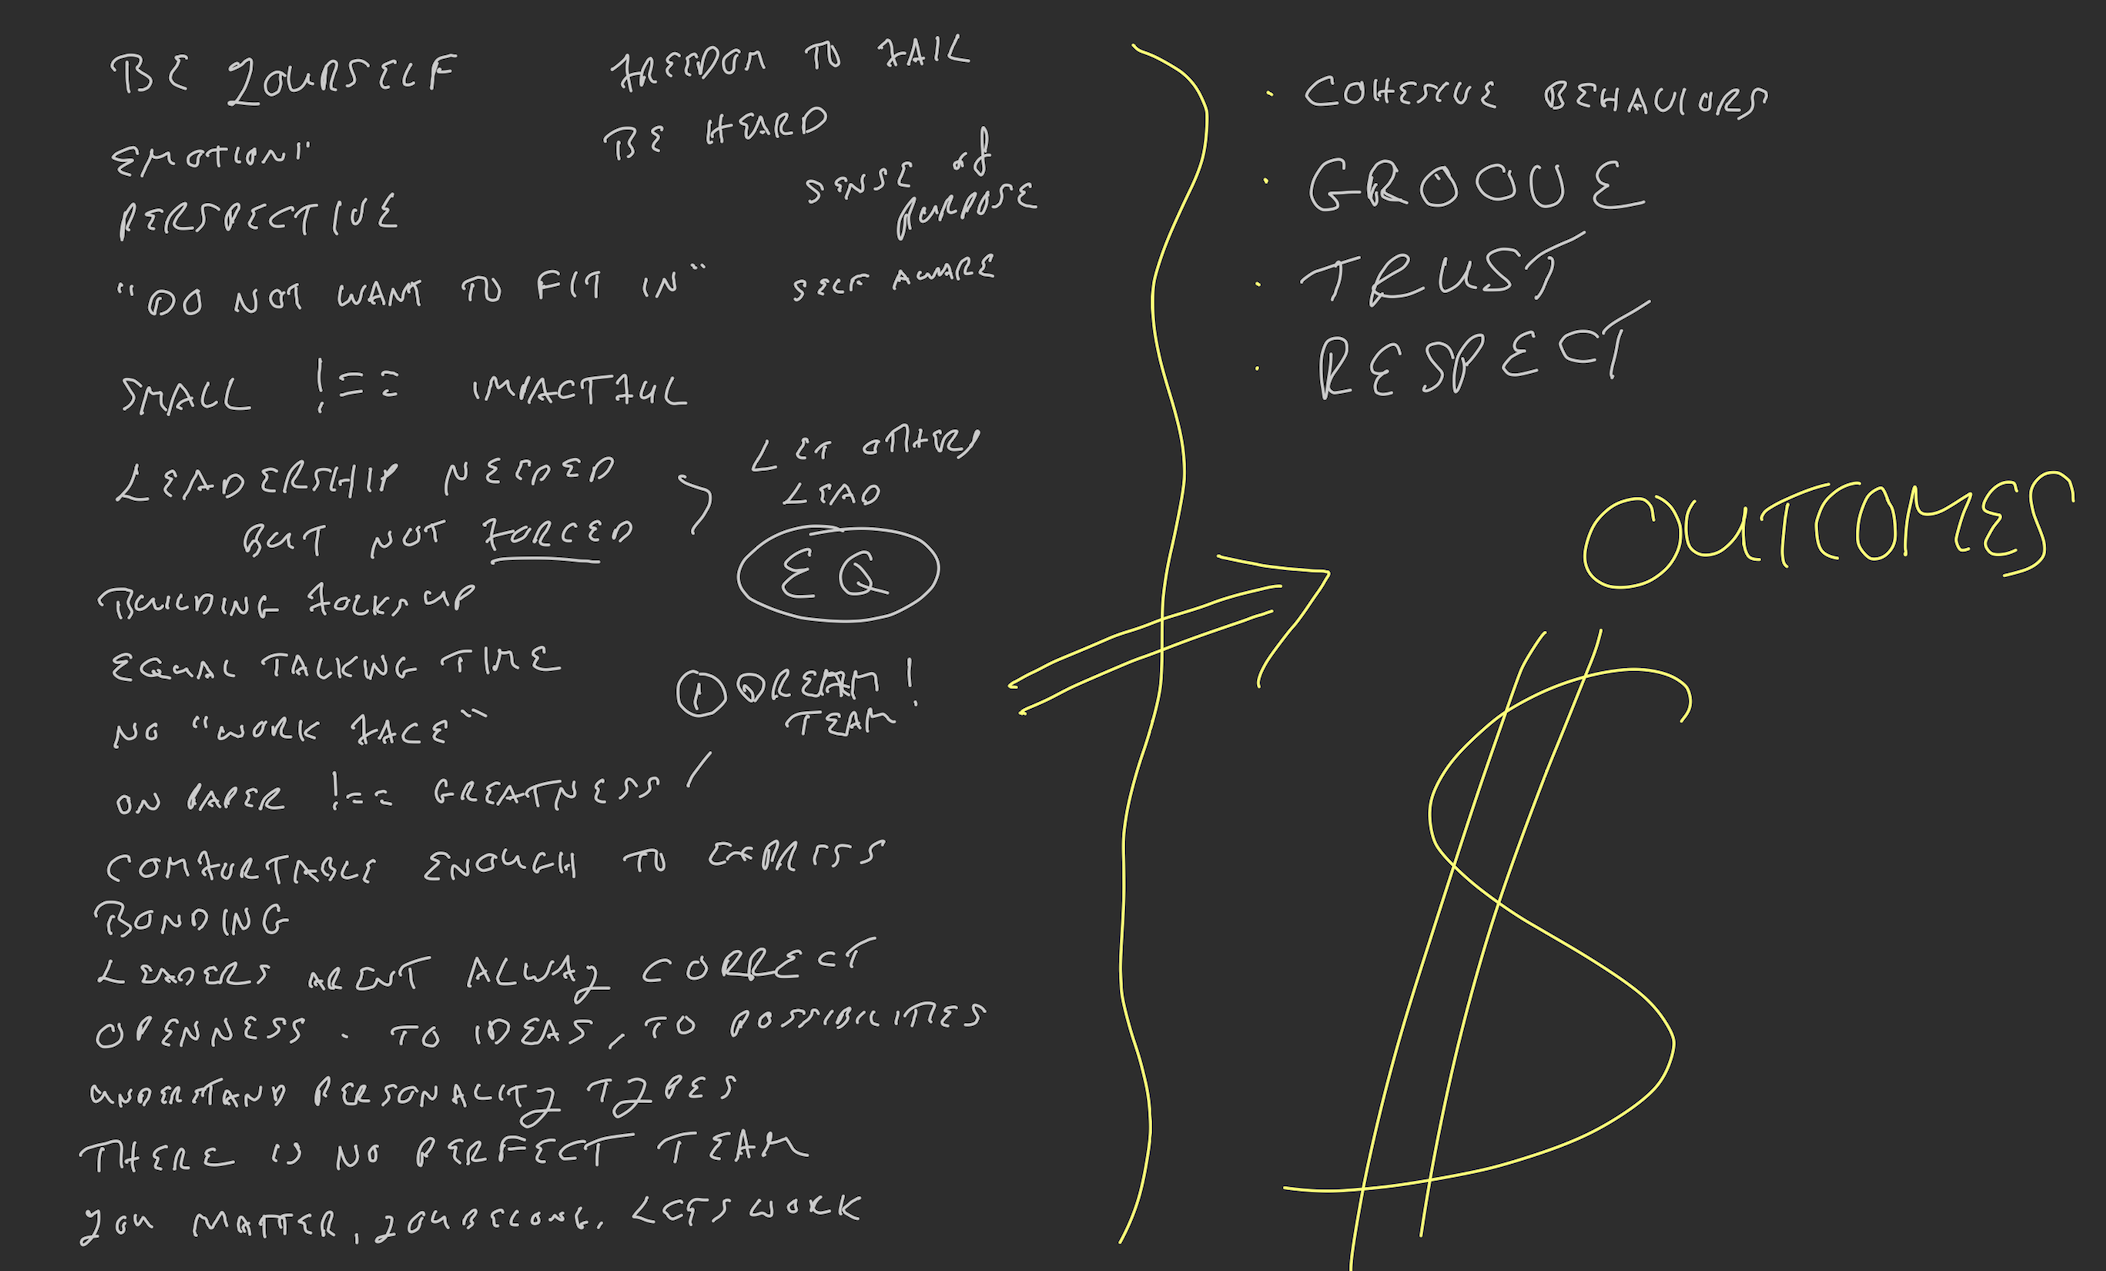 BE YOURSELF
FREEDOM TO FAIL
EMOTION"
BE HEARD
PERSPECTIVE
SENSE of
PURPOSE
"DO NOT WANT TO FIT IN"
SELF AWARE
SMALL !== IMPACTFUL
LEADERSHIP NEEDED
BUT NOT FORCED
LET OTHERS
LEAD
EQ
BUILDING FOLKS UP
EQUAL TALKING TIME
NO "WORK FACE"
1 DREAM!
TEAM
ON PAPER !== GREATNESS
COMFORTABLE ENOUGH TO EXPRESS
BONDING
LEADERS ARENT ALWAY CORRECT
OPENNESS · TO IDEAS, TO POSSIBILITIES
UNDERSTAND PERSONALITY TYPES
THERE IS NO PERFECT TEAM
YOU MATTER, YOU BELONG. LETS WORK
· COHESIVE BEHAVIORS
· GROOVE
· TRUST
· RESPECT
OUTCOMES
$